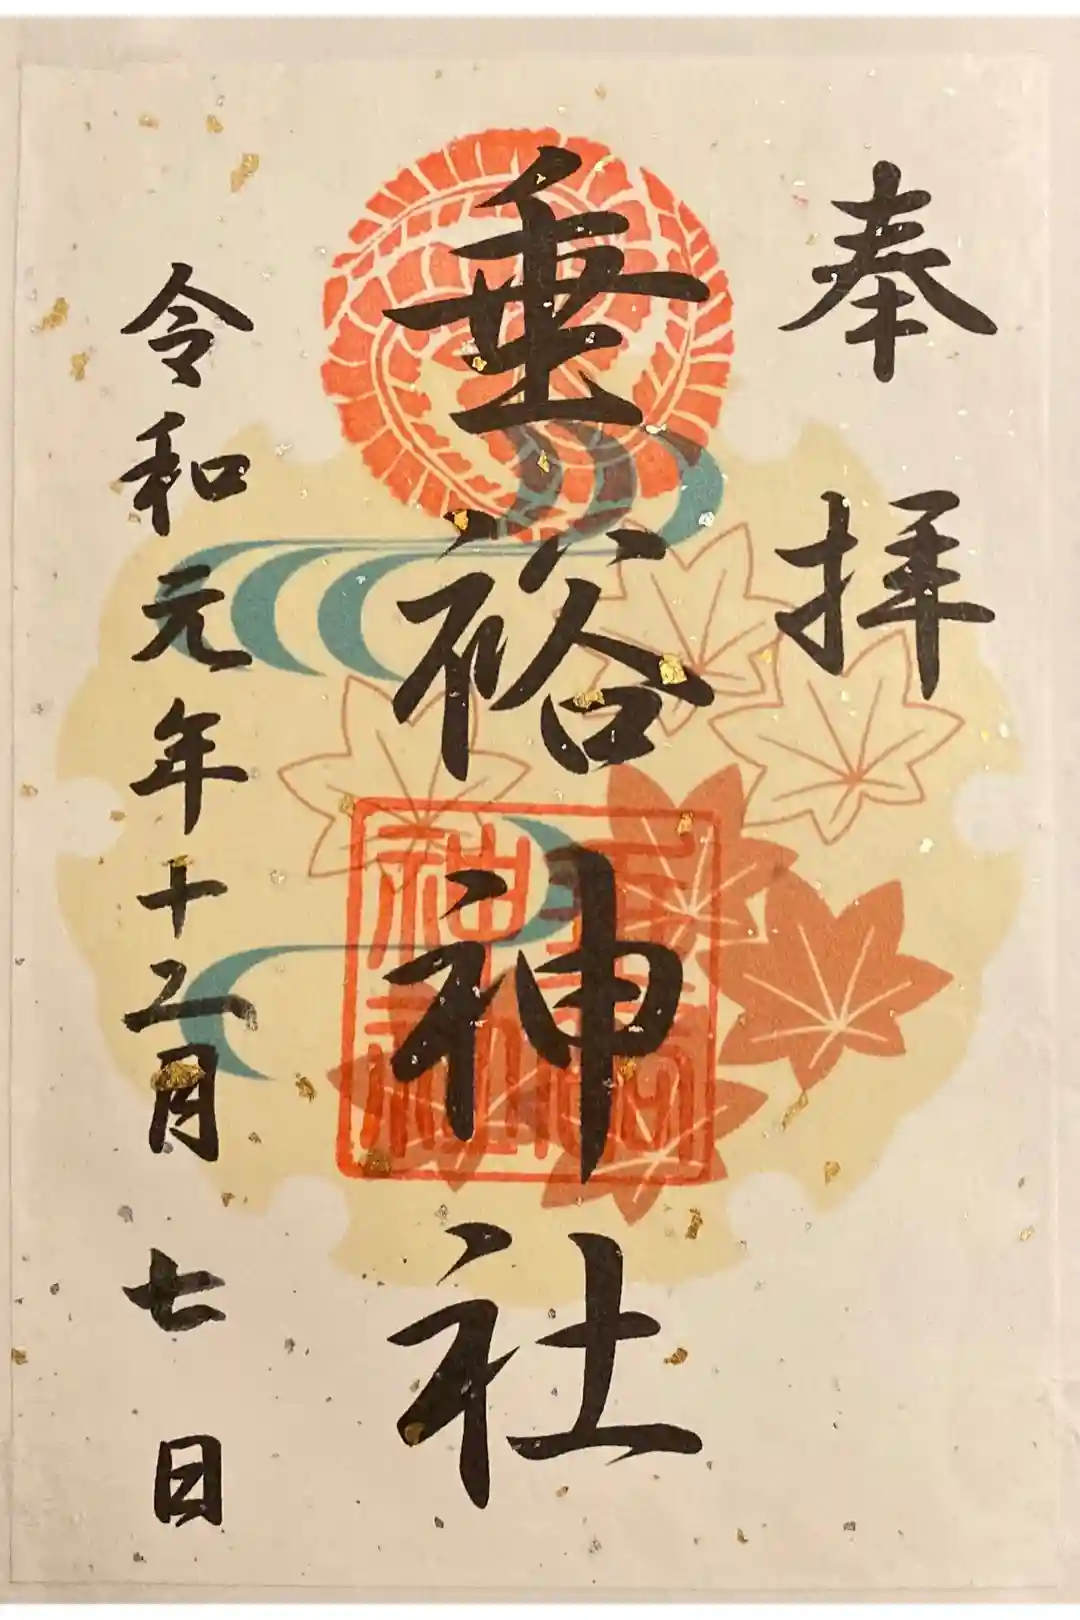 奉拝
垂裕神社
令和元年十二月七日